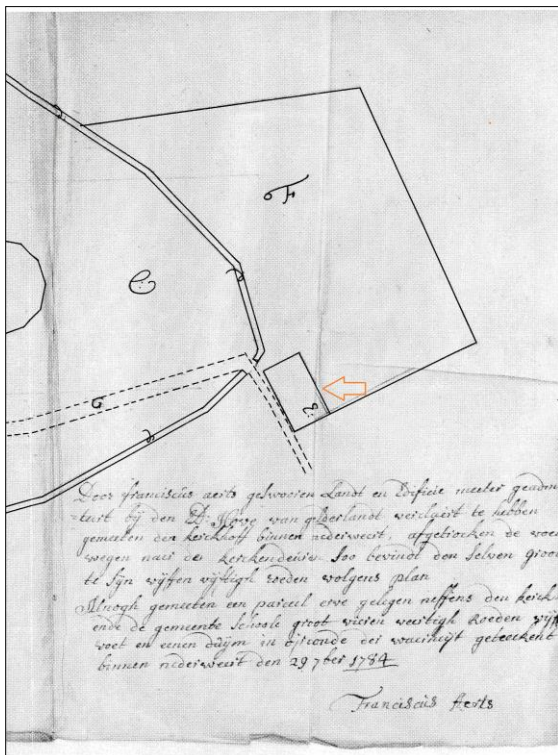 F
C
D
D
G
E
Door franciscus aerts geswooren Landt en Edificie meeter geadm
=teert bij den Ed: Hove van gelderlandt verclairt te hebben
gemeten den kerckhoff binnen nederweert, afgetrocken de
wegen naer de kerckendeure soo bevindt den selven groot
te sijn vijfen vijftigh roeden volgens plan
Alnogh gemeeten een parceel erve gelegen neffens den kerck
ende de gemeente Schoole groot vieren veertigh Roeden
voet en eenen duijm in oironde der waerheijt geteeckent
binnen nederweert den 29 7ber 1784
Franciscus Aerts